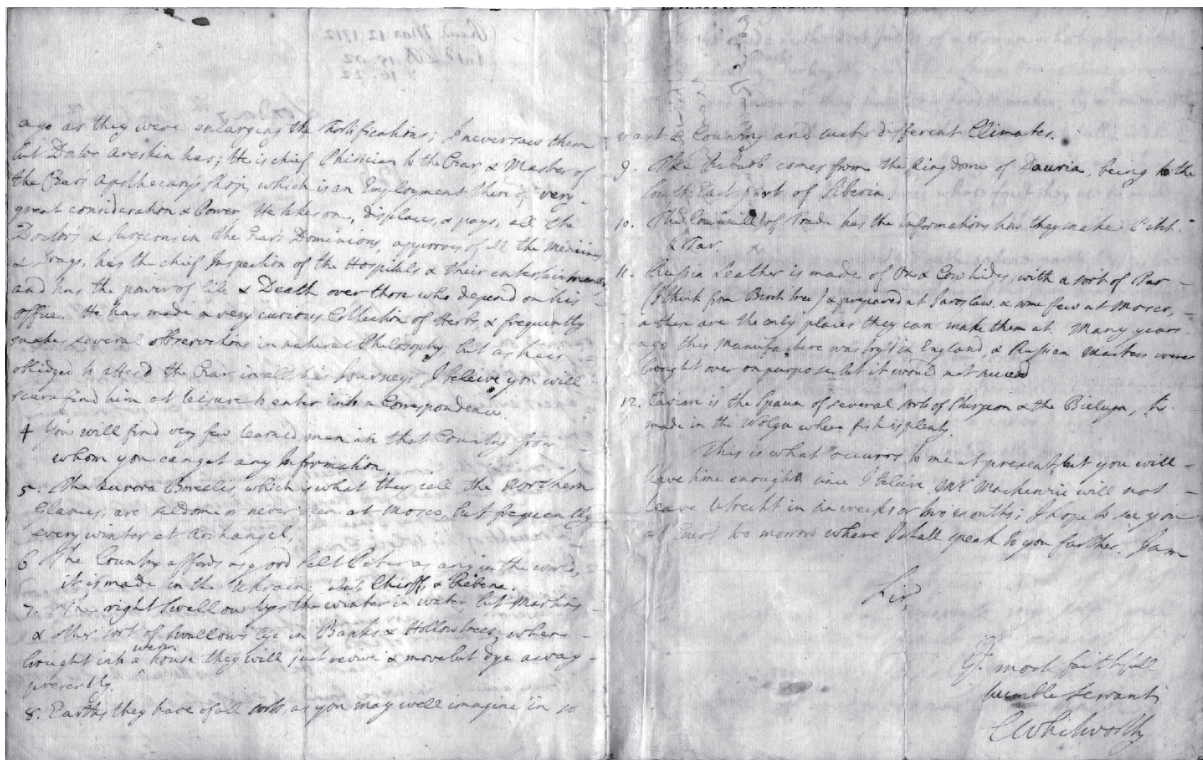 ago as they were enlarging the Fortifications; I never saw them
but Doctor Areskin has; He is chief Phisician to the Czar & Master of
the Czars Apothecary's shop, which is an Employment there of very
great consideration & Power. He takes on, displaces, & pays, all the
Doctors & Surgeons in the Czars Dominions, approves of all the Medicins
& Drugs, has the chief Inspection of the Hospitals & their
and has the power of life & Death over those who depend on his
office. He has made a very curious Collection of Herbs, & frequently
makes several observations in natural Philosophy, but as he is
obliged to attend the Czar in all his Journeys, I beleive you will
scarce find him at leisure to enter into a Correspondence.
4 You will find very few learned men in that Country from
whom you can get any Information.
5. The Aurora Borealis which is what they call the Northern
Glances, are seldome or never seen at Mosco, but frequently
every winter at Archangel.
6 The Country affords as good Salt Peter as any in the world,
it is made in the Ukrain, about Chioff, &
7. The right Swallow lys the winter in water but Martins
& other sort of Swallows lye in Banks & Hollow trees; when
brought into a warm house they will just revive & move but dye away
presently.
8. Earths they have of all sorts as you may well imagine in so
vast a Country and under different Climates.
9. The Rubarb comes from the Kingdome of Dauria, being to the
South East part of Siberia.
10. The Councill of Trade has the informations how they make Pitch
& Tar.
11. Russia Leather is made of Ox & Cow hides, with a sort of Tar
(I think from Birch tree) & prepared at Jaroslaw, & some few at Mosco,
& these are the only places they can make them at. Many years
ago this manufacture was tryd in England, & Russian Masters were
brought over on purpose but it would not succeed
12. Caviare is the Spawn of several sorts of Sturgeon & the Bieluga, tis
made in the Wolga where fish is plenty.
This is what occurrs to me at present, but you will
have time enough since I beleive Mr Mackenzie will not
leave Utrecht in six weeks or two months; I hope to see you
at Court to morrow where I shall speak to you further. I am
Sir,
Yr most faithfull
humble Servant
C Whitworth